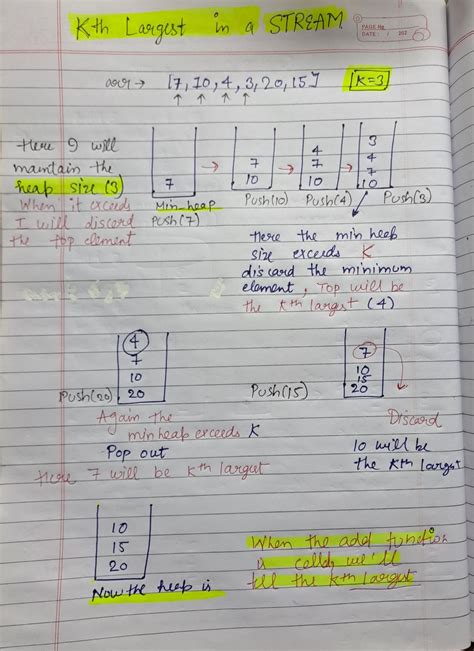 Kth Largest in a STREAM
PAGE No.
DATE: / /202
arr → [7, 10, 4, 3, 20, 15] K=3
↑ ↑ ↑ ↑
Here I will
maintain the
heap size (3)
When it exceeds
I will discard
the top element
7
Min-heap
Push(7)
→
7
10
Push(10)
→
4
7
10
Push(4)
→
3
4
7
10
Push(3)
Here the min heap
size exceeds K
discard the minimum
element, Top will be
the kth largst (4)
4
7
10
20
Push(20)
Again the
minheap exceeds K
Pop out
Here 7 will be kth largest
7
10
15
20
Push(15)
Discard
10 will be
the kth largest
10
15
20
Now the heap is
When the add function
is calld, we'll
tell the kth largest